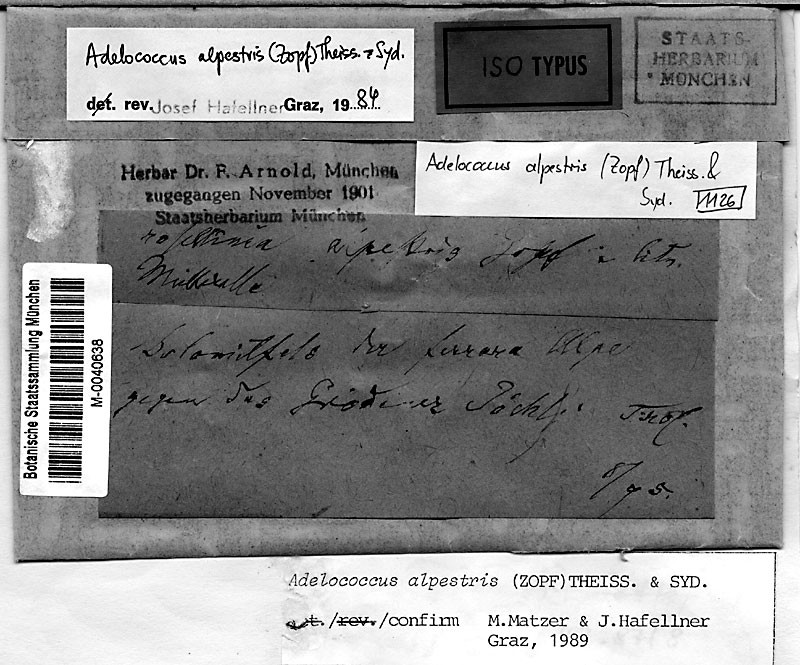 Adelococcus alpestris (Zopf) Theiss. & Syd.
det. rev. Josef Hafellner Graz, 1984
ISO TYPUS
STAATS-
HERBARIUM
MÜNCHEN
Adelococcus alpestris (Zopf) Theiss. &
Syd. 1126
Herbar Dr. F. Arnold, München
zugegangen November 1901
Staatsherbarium München
alpestris Zopf in litt.
Müllerella
Botanische Staatssammlung München
M-0040638
Dolomitfels der ferrara Alpe
gegen das Grödner Jöchl: Tirol.
8/95.
Adelococcus alpestris (ZOPF)THEISS. & SYD.
det./rev./confirm M.Matzer & J.Hafellner
Graz, 1989